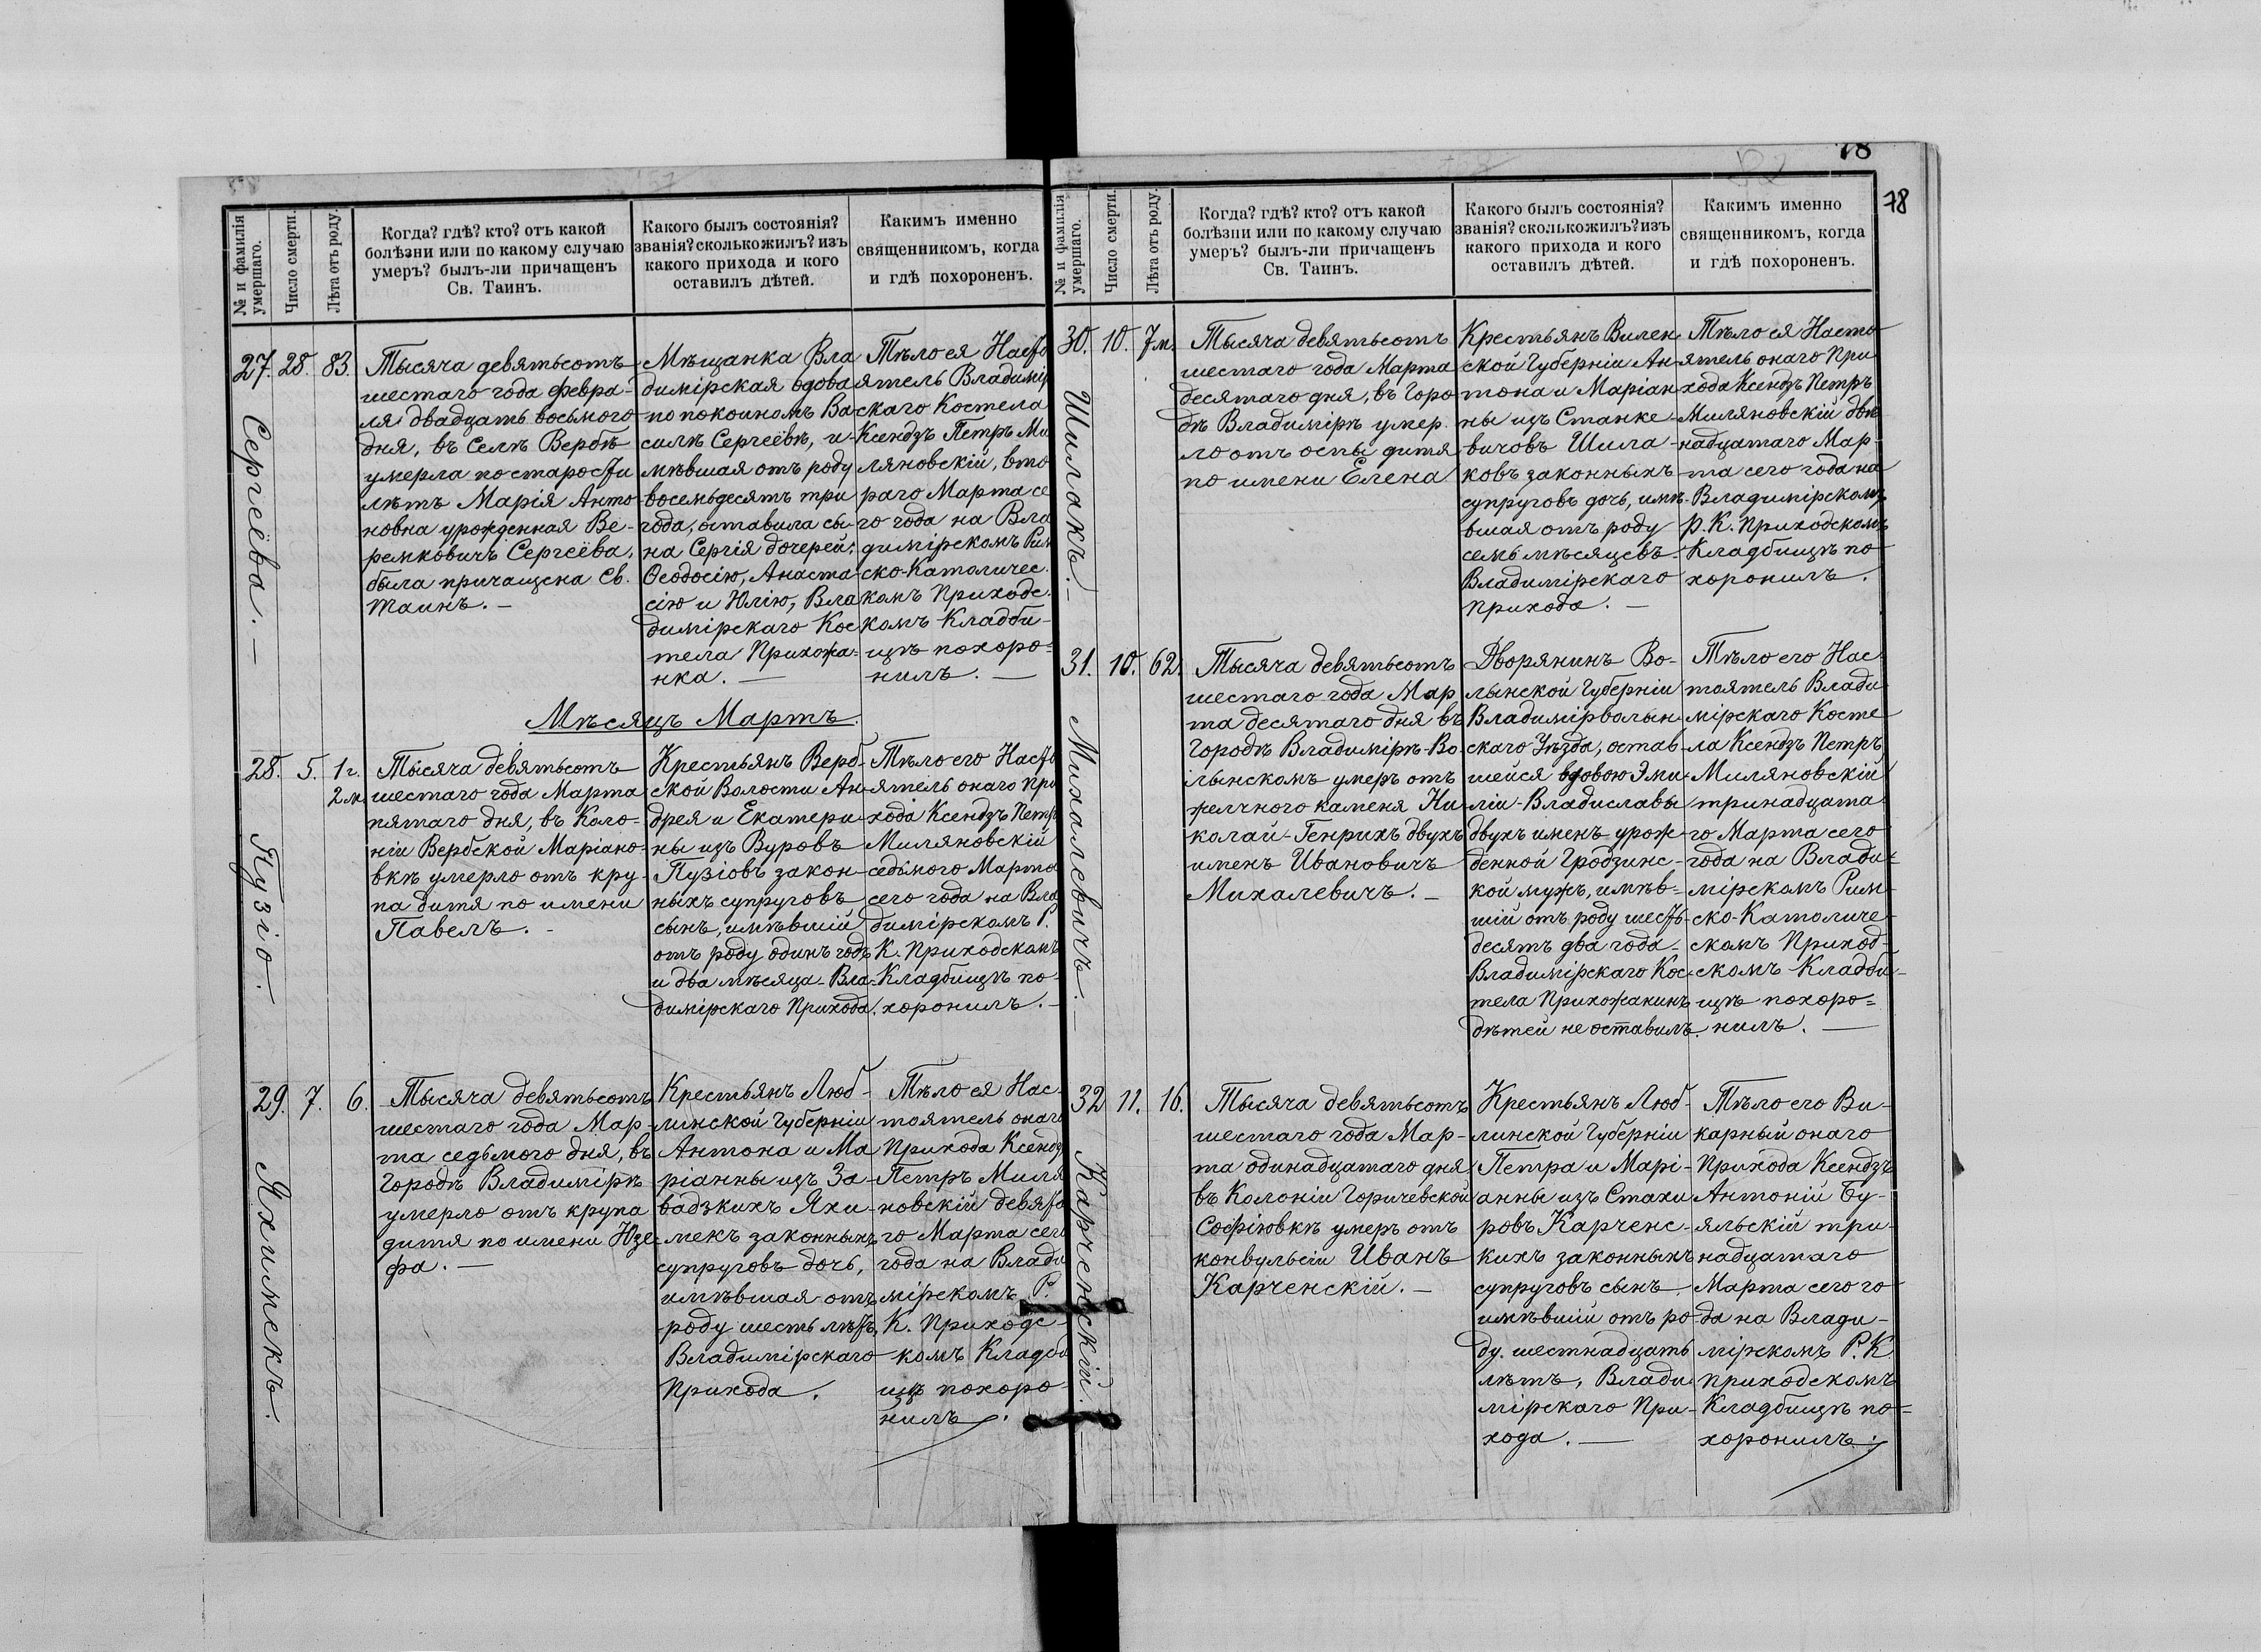 № и фамилія
умершаго.
Число смерти.
Лѣта отъ роду.
Когда? гдѣ? кто? отъ какой
болѣзни или по какому случаю
умеръ? былъ-ли причащенъ
Св. Таинъ.
Какого былъ состоянія?
званія? сколько жилъ? изъ
какого прихода и кого
оставилъ дѣтей.
Какимъ именно
священникомъ, когда
и гдѣ похороненъ.
27.
Сергеёва. —
28.
83.
Тысяча девятьсотъ
шестаго года февра-
ля двадцать восьмого
дня, въ Селѣ Вербѣ
умерла по старости
лѣтъ Марія Анто
новна урожденная Ве-
ремковичъ Сергеёва,
была причащена Св.
Таинъ. —
Мѣщанка Вла
димірская вдова
по покоиномъ Ва
силѣ Сергеёвѣ, и-
мѣвшая отъ роду
восемьдесятъ три
года, оставила сы-
на Сергія дочерей:
Ѳеодосію, Анаста-
сію и Юлію, Вла
димірскаго Кос
тела Прихожа-
нка. —
Тѣло ея Насто
ятель Владимір
скаго Костела
Ксендзъ Петръ Ми
ляновскій, вто
раго Марта се
го года на Вла
димірскомъ Рим
ско-Католичес.
комъ Приходс.
комъ Кладби-
щѣ похоро=
нилъ. —
Мѣсяцъ Мартъ.
28.
Пузіо.
5.
1 г.
2 м.
Тысяча девятьсотъ
шестаго года Марта
пятаго дня, въ Коло-
ніи Вербской Маріано-
вкѣ умерло отъ кру-
па дитя по имени
Павелъ. -
Крестьянъ Верб-
ской Волости Ан-
дрея и Екатери-
ны изъ Вуровъ
Пузіовъ закон-
ныхъ супруговъ
сынъ, имѣвшій
отъ роду одинъ годъ
и два мѣсяца - Вла-
димірскаго Прихода.
Тѣло его Насто
ятель онаго При
хода Ксендзъ Петръ
Миляновскій
седьмого Марта
сего года на Вла
димірскомъ Р.
К. Приходскомъ
Кладбищѣ по-
хоронилъ. —
29.
Яхимекъ.
7.
6.
Тысяча девятьсотъ
шестаго года Мар-
та седьмого дня, въ
Городѣ Владимірѣ
умерло отъ крупа
дитя по имени Юзе-
фа. —
Крестьянъ Люб-
линской Губерніи
Антона и Ма
ріанны изъ За-
вадзкихъ Яхи-
мекъ законныхъ
супруговъ дочь,
имѣвшая отъ
роду шесть лѣтъ,
Владимірскаго
Прихода.
Тѣло ея Нас-
тоятель онаго
Прихода Ксендзъ
Петръ Миля
новскій девято
го Марта сего
года на Влади
мірскомъ Р.
К. Приходс-
комъ Кладби
щѣ похоро-
нилъ.
78
78
№ и фамилія
умершаго.
Число смерти.
Лѣта отъ роду.
Когда? гдѣ? кто? отъ какой
болѣзни или по какому случаю
умеръ? былъ-ли причащенъ
Св. Таинъ.
Какого былъ состоянія?
званія? сколько жилъ? изъ
какого прихода и кого
оставилъ дѣтей.
Какимъ именно
священникомъ, когда
и гдѣ похороненъ.
30.
Шилакъ. —
10.
7 м.
Тысяча девятьсотъ
шестаго года Марта
десятаго дня, въ Горо
дѣ Владимірѣ умер.
ло отъ оспы дитя
по имени Елена
Крестьянъ Вилен
ской Губерніи Ан-
тона и Маріан
ны изъ Станке-
вичовъ Шила-
ковъ законныхъ
супруговъ дочь, имѣ-
вшая отъ роду
семь мѣсяцевъ -
Владимірскаго
Прихода. —
Тѣло ея Насто
ятель онаго При
хода Ксендзъ Петръ
Миляновскій двѣ
надцатаго Мар-
та сего года на
Владимірскомъ
Р. К. Приходскомъ
Кладбищѣ по-
хоронилъ.
31.
Михалевичъ. —
10.
62.
Тысяча девятьсотъ
шестаго года Мар
та десятаго дня въ
Городѣ Владимірѣ-Во-
лынскомъ умеръ отъ
желчного каменя Ни-
колай-Генрихъ двухъ
именъ Ивановичъ
Михалевичъ. —
Дворянинъ Во-
лынской Губерніи
Владимірволын
скаго Уѣзда, остав-
шейся вдовою Эми-
ліи-Владиславы
двухъ именъ урож-
денной Гродзинс-
кой мужъ, имѣв-
шій отъ роду шесть
десятъ два года -
Владимірскаго Кос-
тела Прихожанинъ
дѣтей не оставилъ.
Тѣло его Нас-
тоятель Влади-
мірскаго Косте
ла Ксендзъ Петръ
Миляновскій
тринадцата
го Марта сего
года на Влади-
мірскомъ Рим-
ско-Католиче-
скомъ Приход-
скомъ Кладби-
щѣ похоро=
нилъ. —
32
Карченскій.
11.
16.
Тысяча девятьсотъ
шестаго года Мар-
та одинадцатаго дня
въ Колоніи Горичевской
Софіювкѣ умеръ отъ
конвульсіи Иванъ
Карченскій. —
Крестьянъ Люб-
линской Губерніи
Петра и Марі-
анны изъ Стахи
ровъ Карченс-
кихъ законныхъ
супруговъ сынъ
имѣвшій отъ ро-
ду. шестнадцать
лѣтъ, Влади
мірскаго При-
хода. —
Тѣло его Ви-
карный онаго
Прихода Ксендзъ
Антоній Бу-
яльскій три-
надцатаго
Марта сего го-
да на Влади-
мірскомъ Р. К.
приходскомъ
Кладбищѣ по=
хоронилъ.